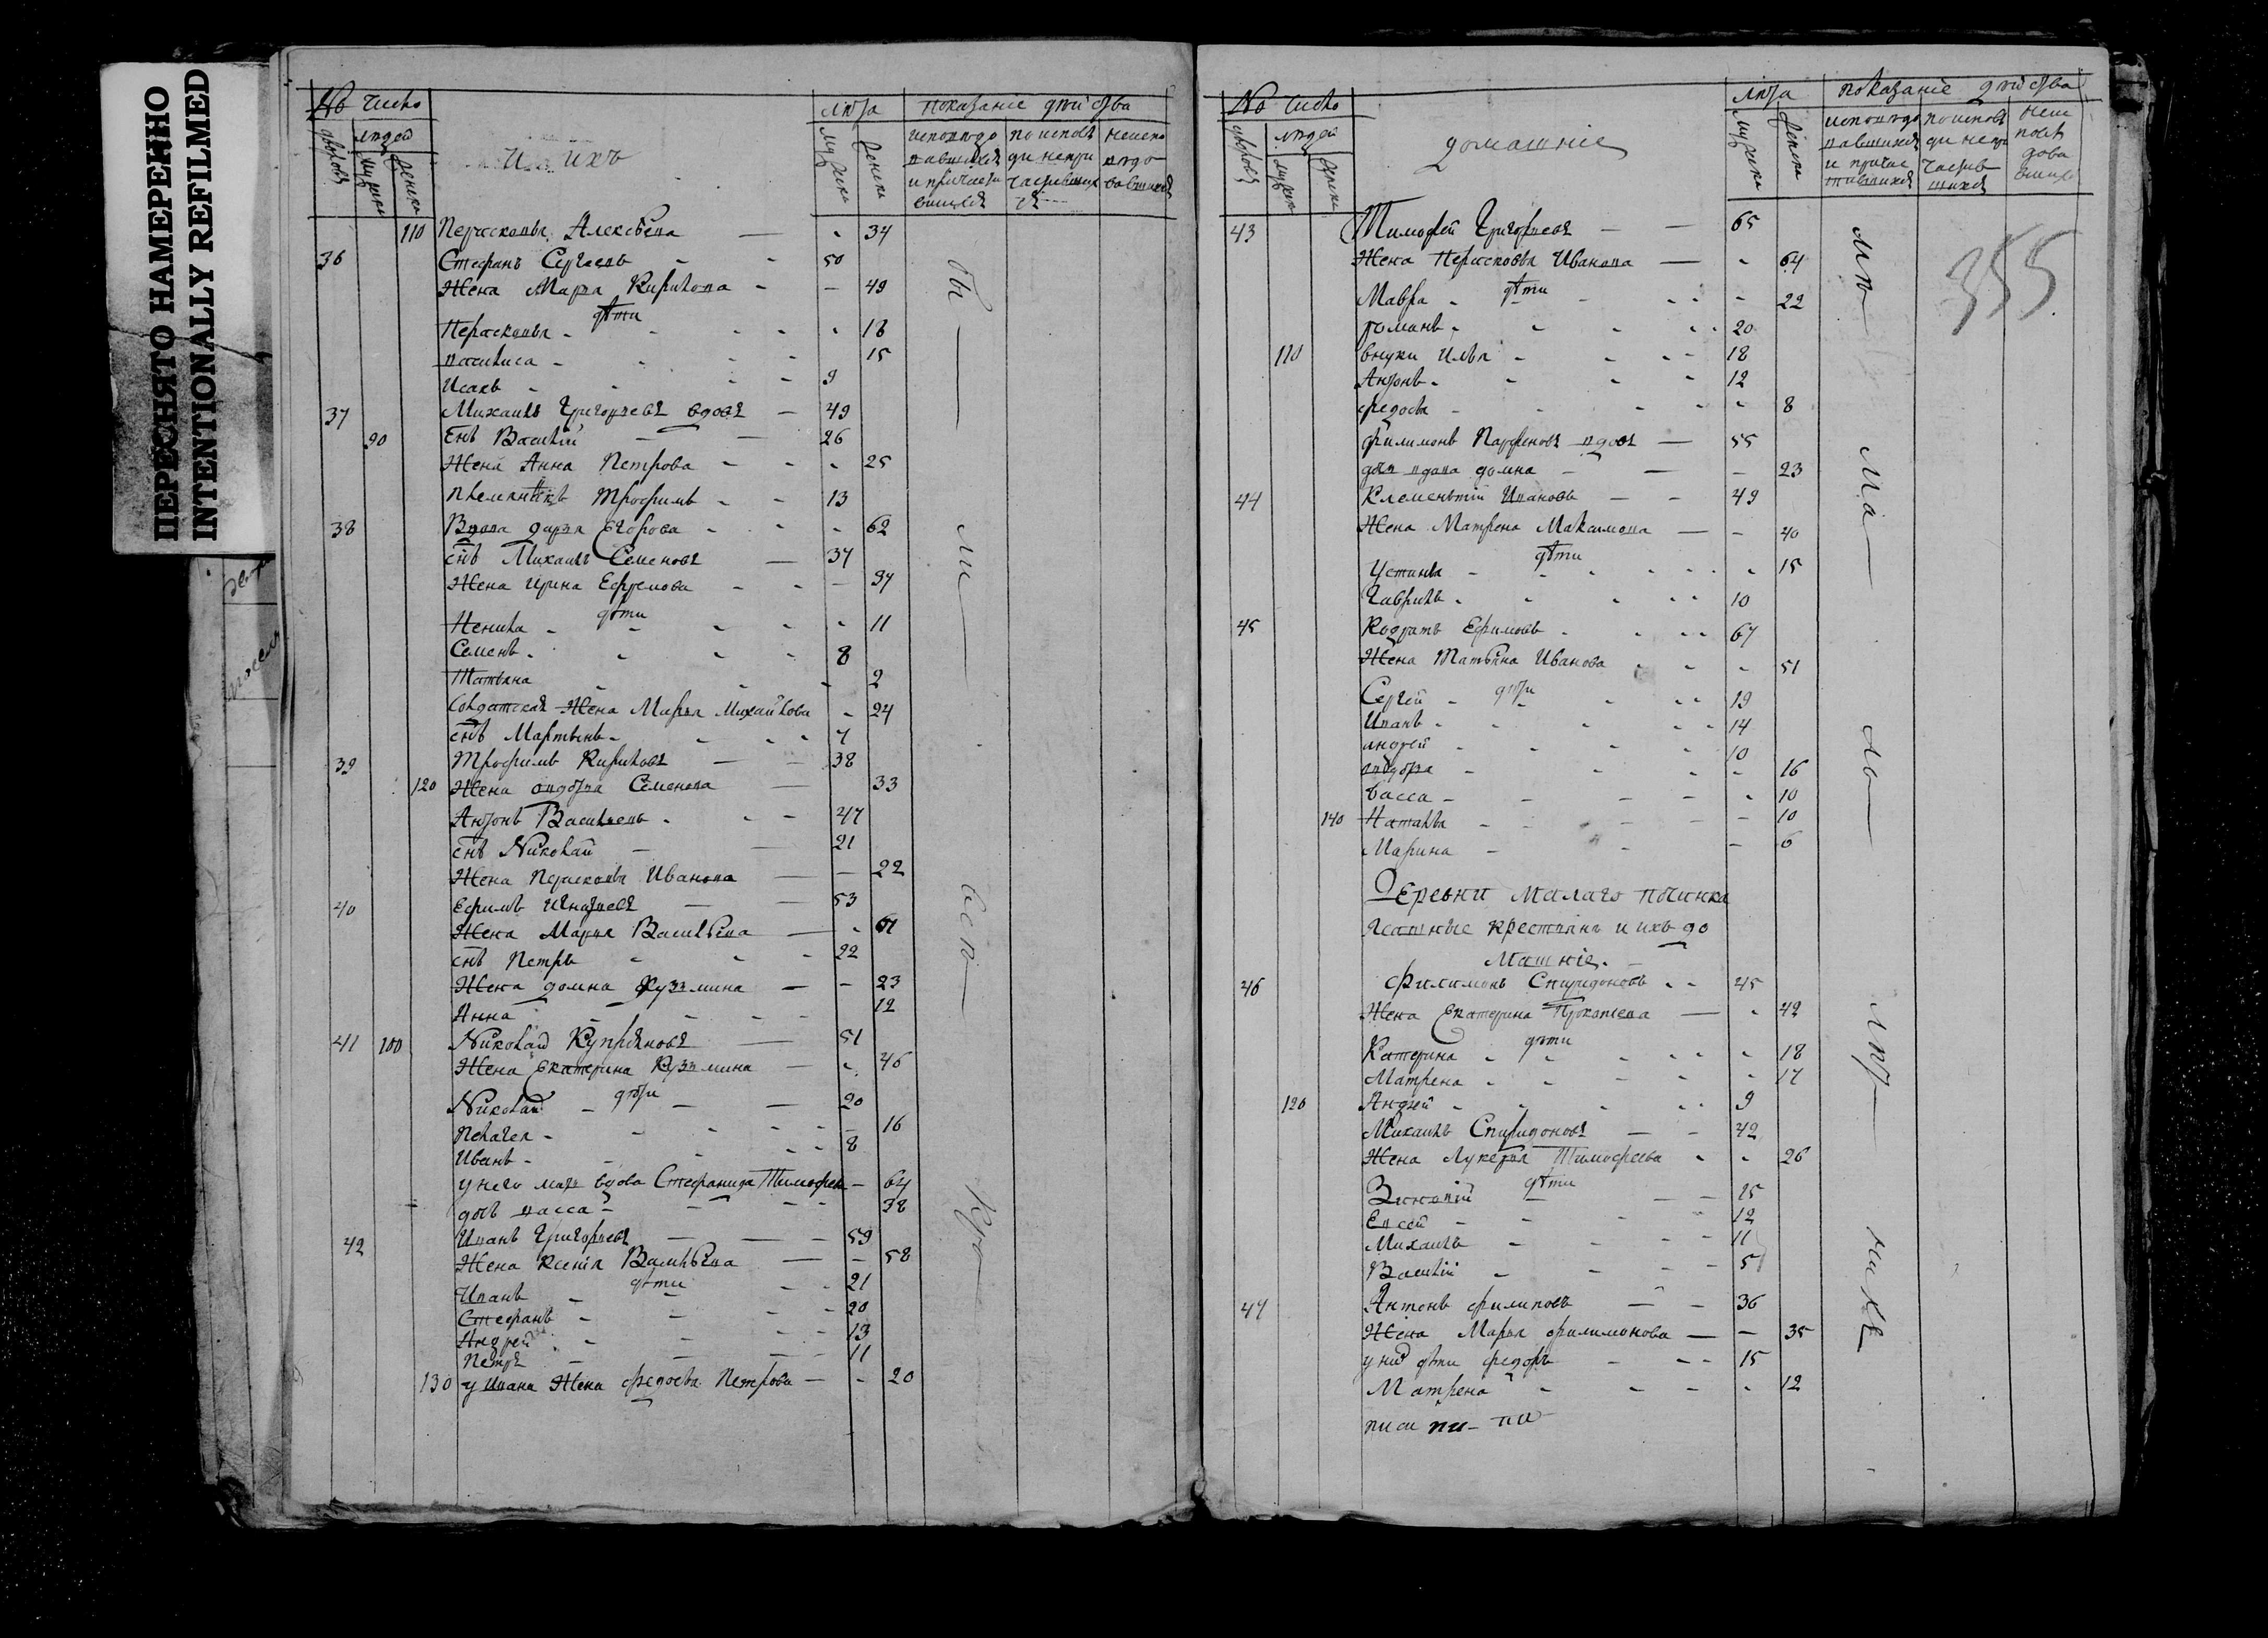 ПЕРЕСНЯТО НАМЕРЕННО
INTENTIONALLY REFILMED
№ Число
людей
Ихъ
лѣта
показаніе дѣйства
110 Перасковья Алексѣева — 34
36 Стефанъ Сергѣевъ 50
Жена Марѳа Кирилова — 49
дѣти
Перасковья 18
василиса 15
Исакъ 9
37 Михаилъ Григорьевъ вдовъ — 49
90 Снъ Василій — 26
Жена Анна Петрова 25
племянникъ Трофимъ 13
38 Вдова дарья Егорова 62
снъ Михаилъ Семеновъ — 37
Жена Ирина Ефремова — 37
дѣти
Ненила 11
Семенъ 8
Татьяна 2
Солдатская Жена Марья Михайлова 24
снъ Мартынъ 7
39 Трофимъ Кириловъ — 38
120 Жена Семенова — 33
Антонъ Васильевъ 47
снъ Николай — 21
Жена Перасковья Иванова — 22
40 Ефимъ Игнатьевъ — 53
Жена Марья Васильева — 61
снъ Петръ 22
Жена домна Кузмина — 23
Анна 12
41 100 Николай Купрѣяновъ — 51
Жена Екатерина Кузмина — 46
дѣти
Николай — 20
Пелагея 16
Иванъ 8
у него мать вдова Стефанида Тимофеева — 64
дочь васса 38
42 Иванъ Григорьевъ — 59
Жена Ксенія Васильева — 58
дѣти
Иванъ 21
Стефанъ 20
Андрей 13
Петръ 11
130 у Ивана Жена федосья Петрова — 20
бы — ли — исп —
№ Число
людей
домашніе
лѣта
показаніе дѣйства
355
43 Тимофей Григорьевъ — 65
Жена Перасковья Иванова — 64
дѣти
Мавра 22
романъ 20
110 внуки Илья 18
Антонъ 12
федосья 8
филимонъ Парфеновъ вдовъ — 55
дочь вдова домна — 23
44 Клементій Ивановъ — 49
Жена Матрена Максимова — 40
дѣти
Устинья 15
Гаврилъ 10
45 Кодратъ Ефимовъ 67
Жена Татьяна Иванова 51
дѣти
Сергей 19
Иванъ 14
андрей 10
16
васса 10
140 Наталья 10
Марина 6
Деревни Малаго починка
ясашные крестьянъ и ихъ до
машніе.
46 Филимонъ Спиридоновъ 45
Жена Екатерина Прокопьева — 42
дѣти
Катерина 18
Матрена 17
120 Андрей 9
Михаилъ Спиридоновъ — 42
Жена Лукерья Тимофеева 26
дѣти
Зиновій 15
Евсей 12
Михаилъ 11
Василій 5
47 Антонъ филиповъ — 36
Жена Марья филимонова — 35
у нихъ дѣти федоръ 15
Матрена 12